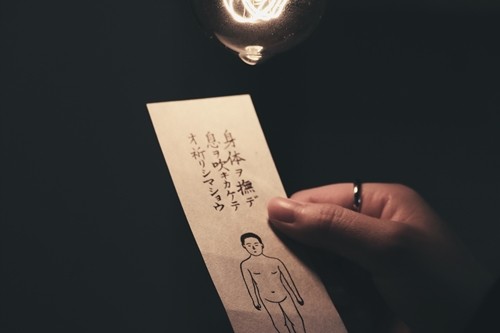 身体ヲ撫デ
息ヲ吹キカケテ
オ祈リシマショウ